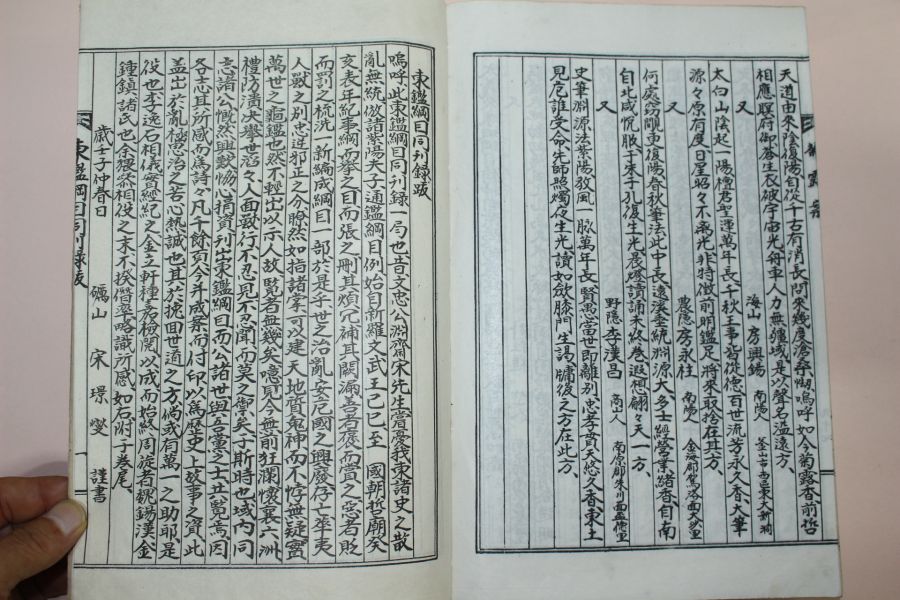 天道由來陰復陽自從千古有消長問來幾度滄桑 嗚呼如今菊露香前哲
相應瞑府御蒼生衣被宇宙光舟車人力無疆域是以聲名溢遠方
又 海山 房興錫 南陽人 釜山市西區東大新洞
太白山陰起一陽檀君聖運萬年長千秋王事皆從德百世流芳永久香大筆
源々原有度日星昭々不滅光非特徵前明鑑足將來取捨在其方
又 農隱 房永柱 南陽人 金海郡駕洛面大沙里
何處窈 吏復陽春秋筆法此中長遠溪垂統淵源大多士經營業緒香自南
自北咸悅服于朱于孔復生光晨燈讀誦未終卷遐想翩々天一方
又 野隱 李漢昌 商山人 南原郡朱川面
史筆淵源法紫陽敦風一脈萬年長賢愚當世即離別忠孝貫天悠久香東土
見危誰受命先師照燭夜生光讀如飮 門生謁牖後之方在此方
東鑑綱目同刊錄跋
嗚呼此東鑑綱目同刊錄一局也昔文忠公淵齋宋先生嘗憂我東諸史之散
亂無統倣諸紫陽夫子通鑑綱目例始自新羅文武王己巳至 國朝哲廟癸
亥表年紀事綱而挈之目而張之刪其煩冗補其闕漏善者褒而賞之惡者貶
而罰之梳洗一新編成綱目一部於是乎世之治亂安危國之興廢存亡華夷
人獸之別忠逆邪正之分瞭然如指諸掌可以建天地質鬼神而不悖無疑實
萬世之龜鑑也然不輕出以示人故覽者無幾矣噫見今無前狂瀾懷襄六洲
禮防潰決擧世滔々人面獸行不忍見不忍聞而莫之禦矣于斯時也域內同
志諸公慨然興歎恊心捐資刊出東鑑綱目而公諸世與吾黨之士共覽焉因
各志其所感而爲詩々凡千餘頁今幷成案而付印以爲歷史上故事之資此
盖出於亂極思治之苦心熱誠也其於挽回世道之方倘或有萬一之助耶是
役也李丈逸石相儀實經紀之金立軒種嘉檢閱以成而始終周旋者魏錫漢金
鍾鎮諸氏也余猥忝相役之末不揆僭率略識所感如右附于卷尾
歲壬子仲春日 礪山 宋璟燮 謹書
東鑑綱目同刊錄跋
一